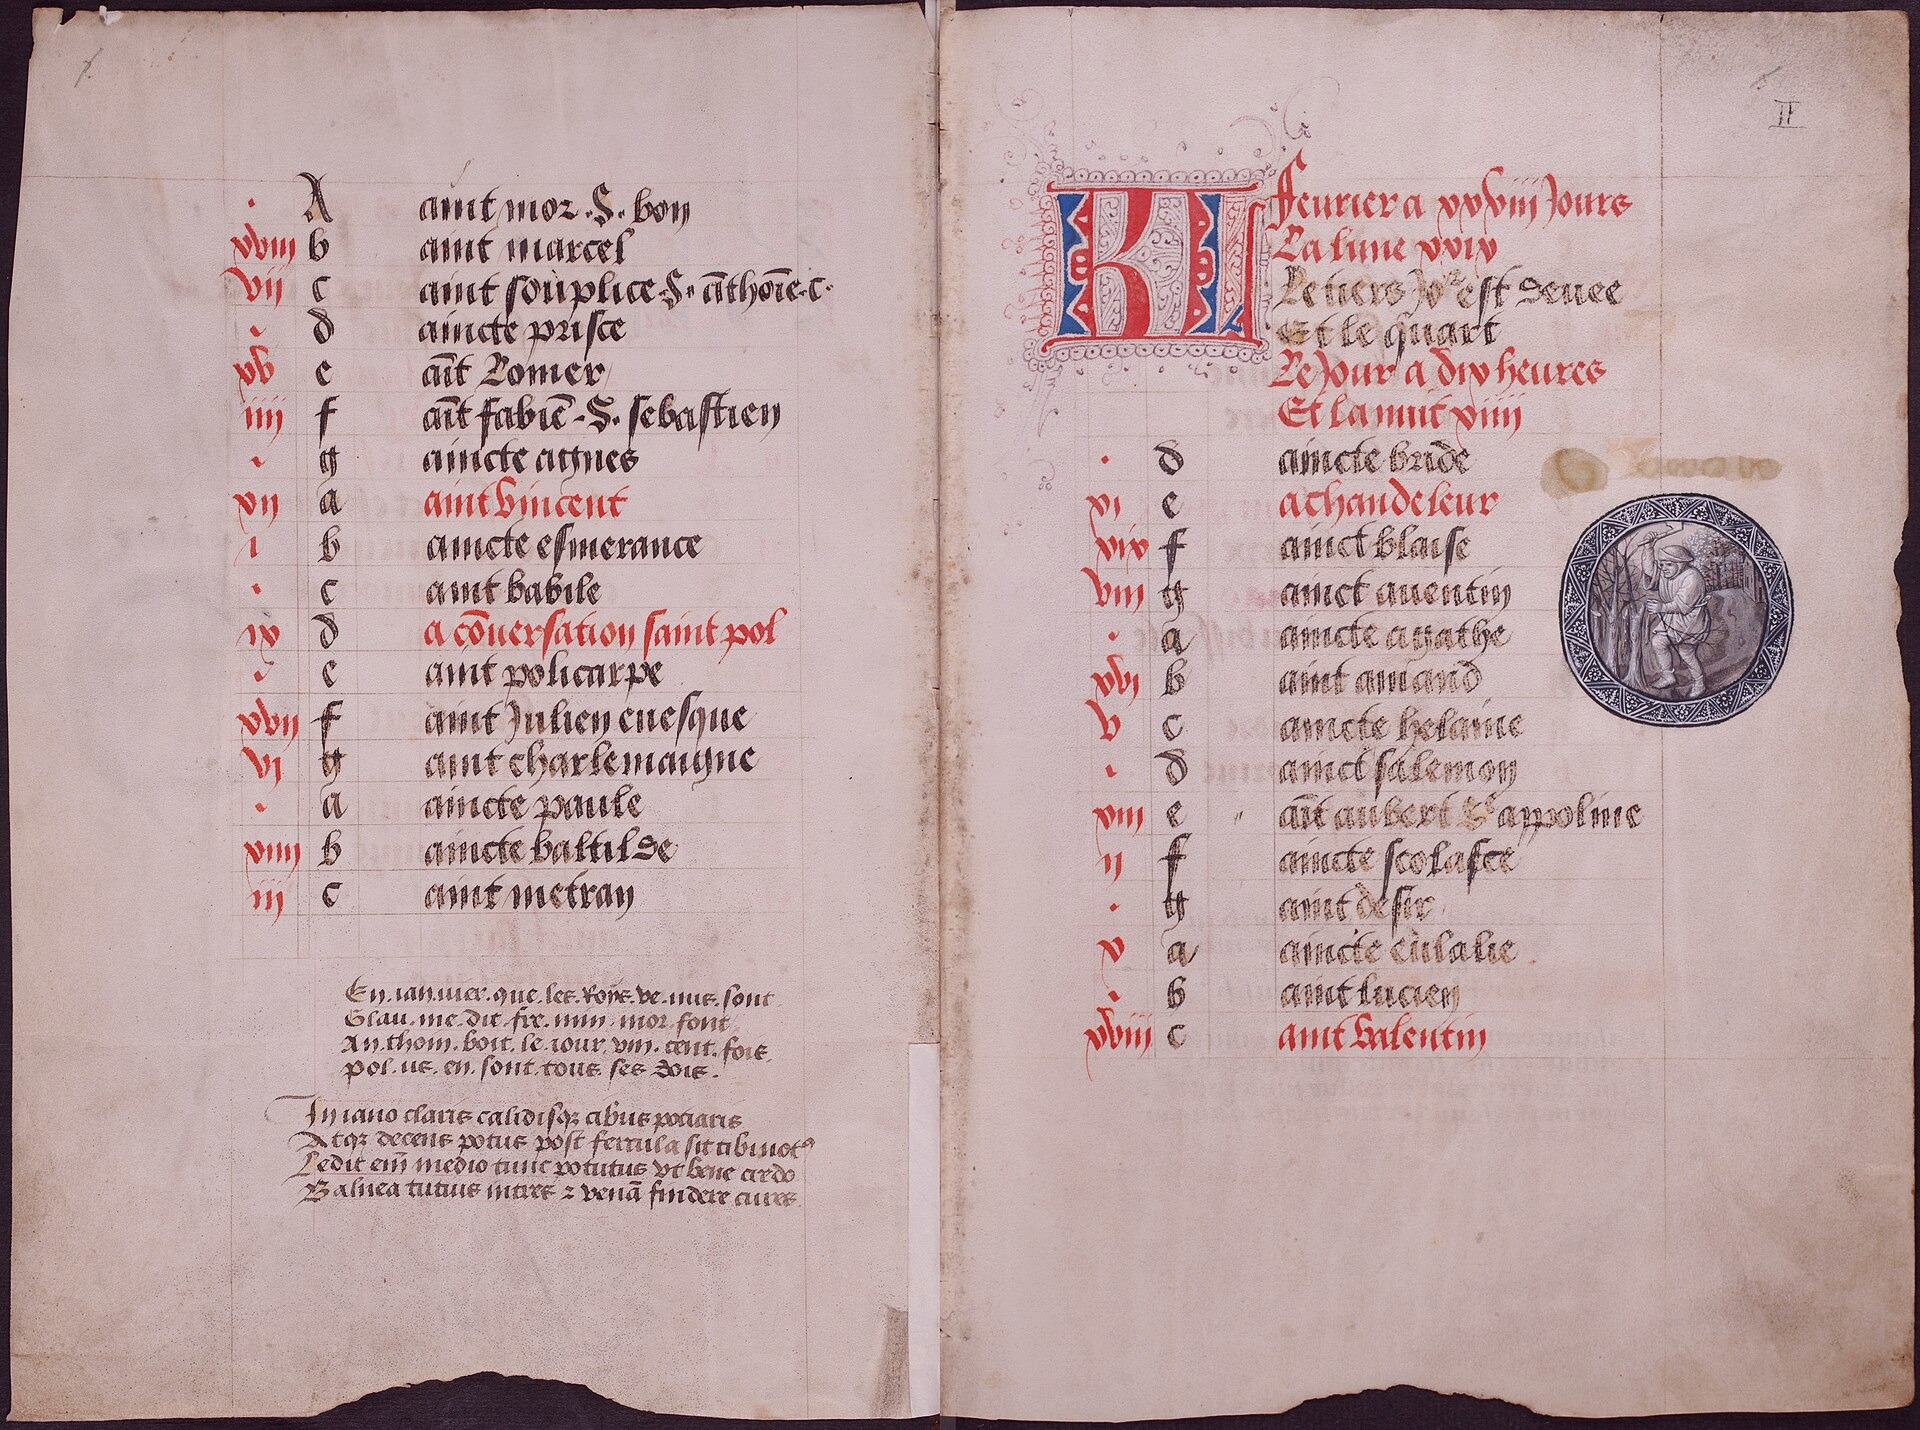 A aint mor .S. bon
xviii b aint marcel
vii c aint souplice .S. āthoīe .c.
d aincte prisce
xv e aīt Lomer
iiii f aīt fabiē .S. sebastien
g aincte agnes
vii a aint vincent
i b aincte esmerance
c aint babile
ix d a cōversation saint pol
e aint policarpe
xvii f aint Julien evesque
vi g aint charlemaigne
a aincte paule
xiiii b aincte baltilde
iii c aint metran
En.ian.uier.que.les.Roys.ve.nus.sont
Glau.me.dit.fre.min.mor.font
An.thoin.boit.le.iour.vin.cent.fois
pol.us.en.sont.tous.ses.dois.
In iano claris calidisqz cibus pociaris
Atqz decens potus post fercula sit tibi notꝰ
Ledit em̄ medio tunc potutus vt bene credo
Balnea tutius intres z venā findere cures
II
KL fevrier a xxviii Jours
La lune xxix
Le tiers Jo est devee
Et le quart
Le Jour a dix heures
Et la nuit xiiii
d aincte bride
xi e a chandeleur
xix f ainct blaise
viii g ainct aventin
a aincte agathe
xvi b aint amand
v c aincte helaine
d ainct salemon
xiii e aīt aubert Sᵉ appoline
ii f aincte scolasce
g aint desir
x a aincte eulalie
b aint lucien
xviii c aint valentin